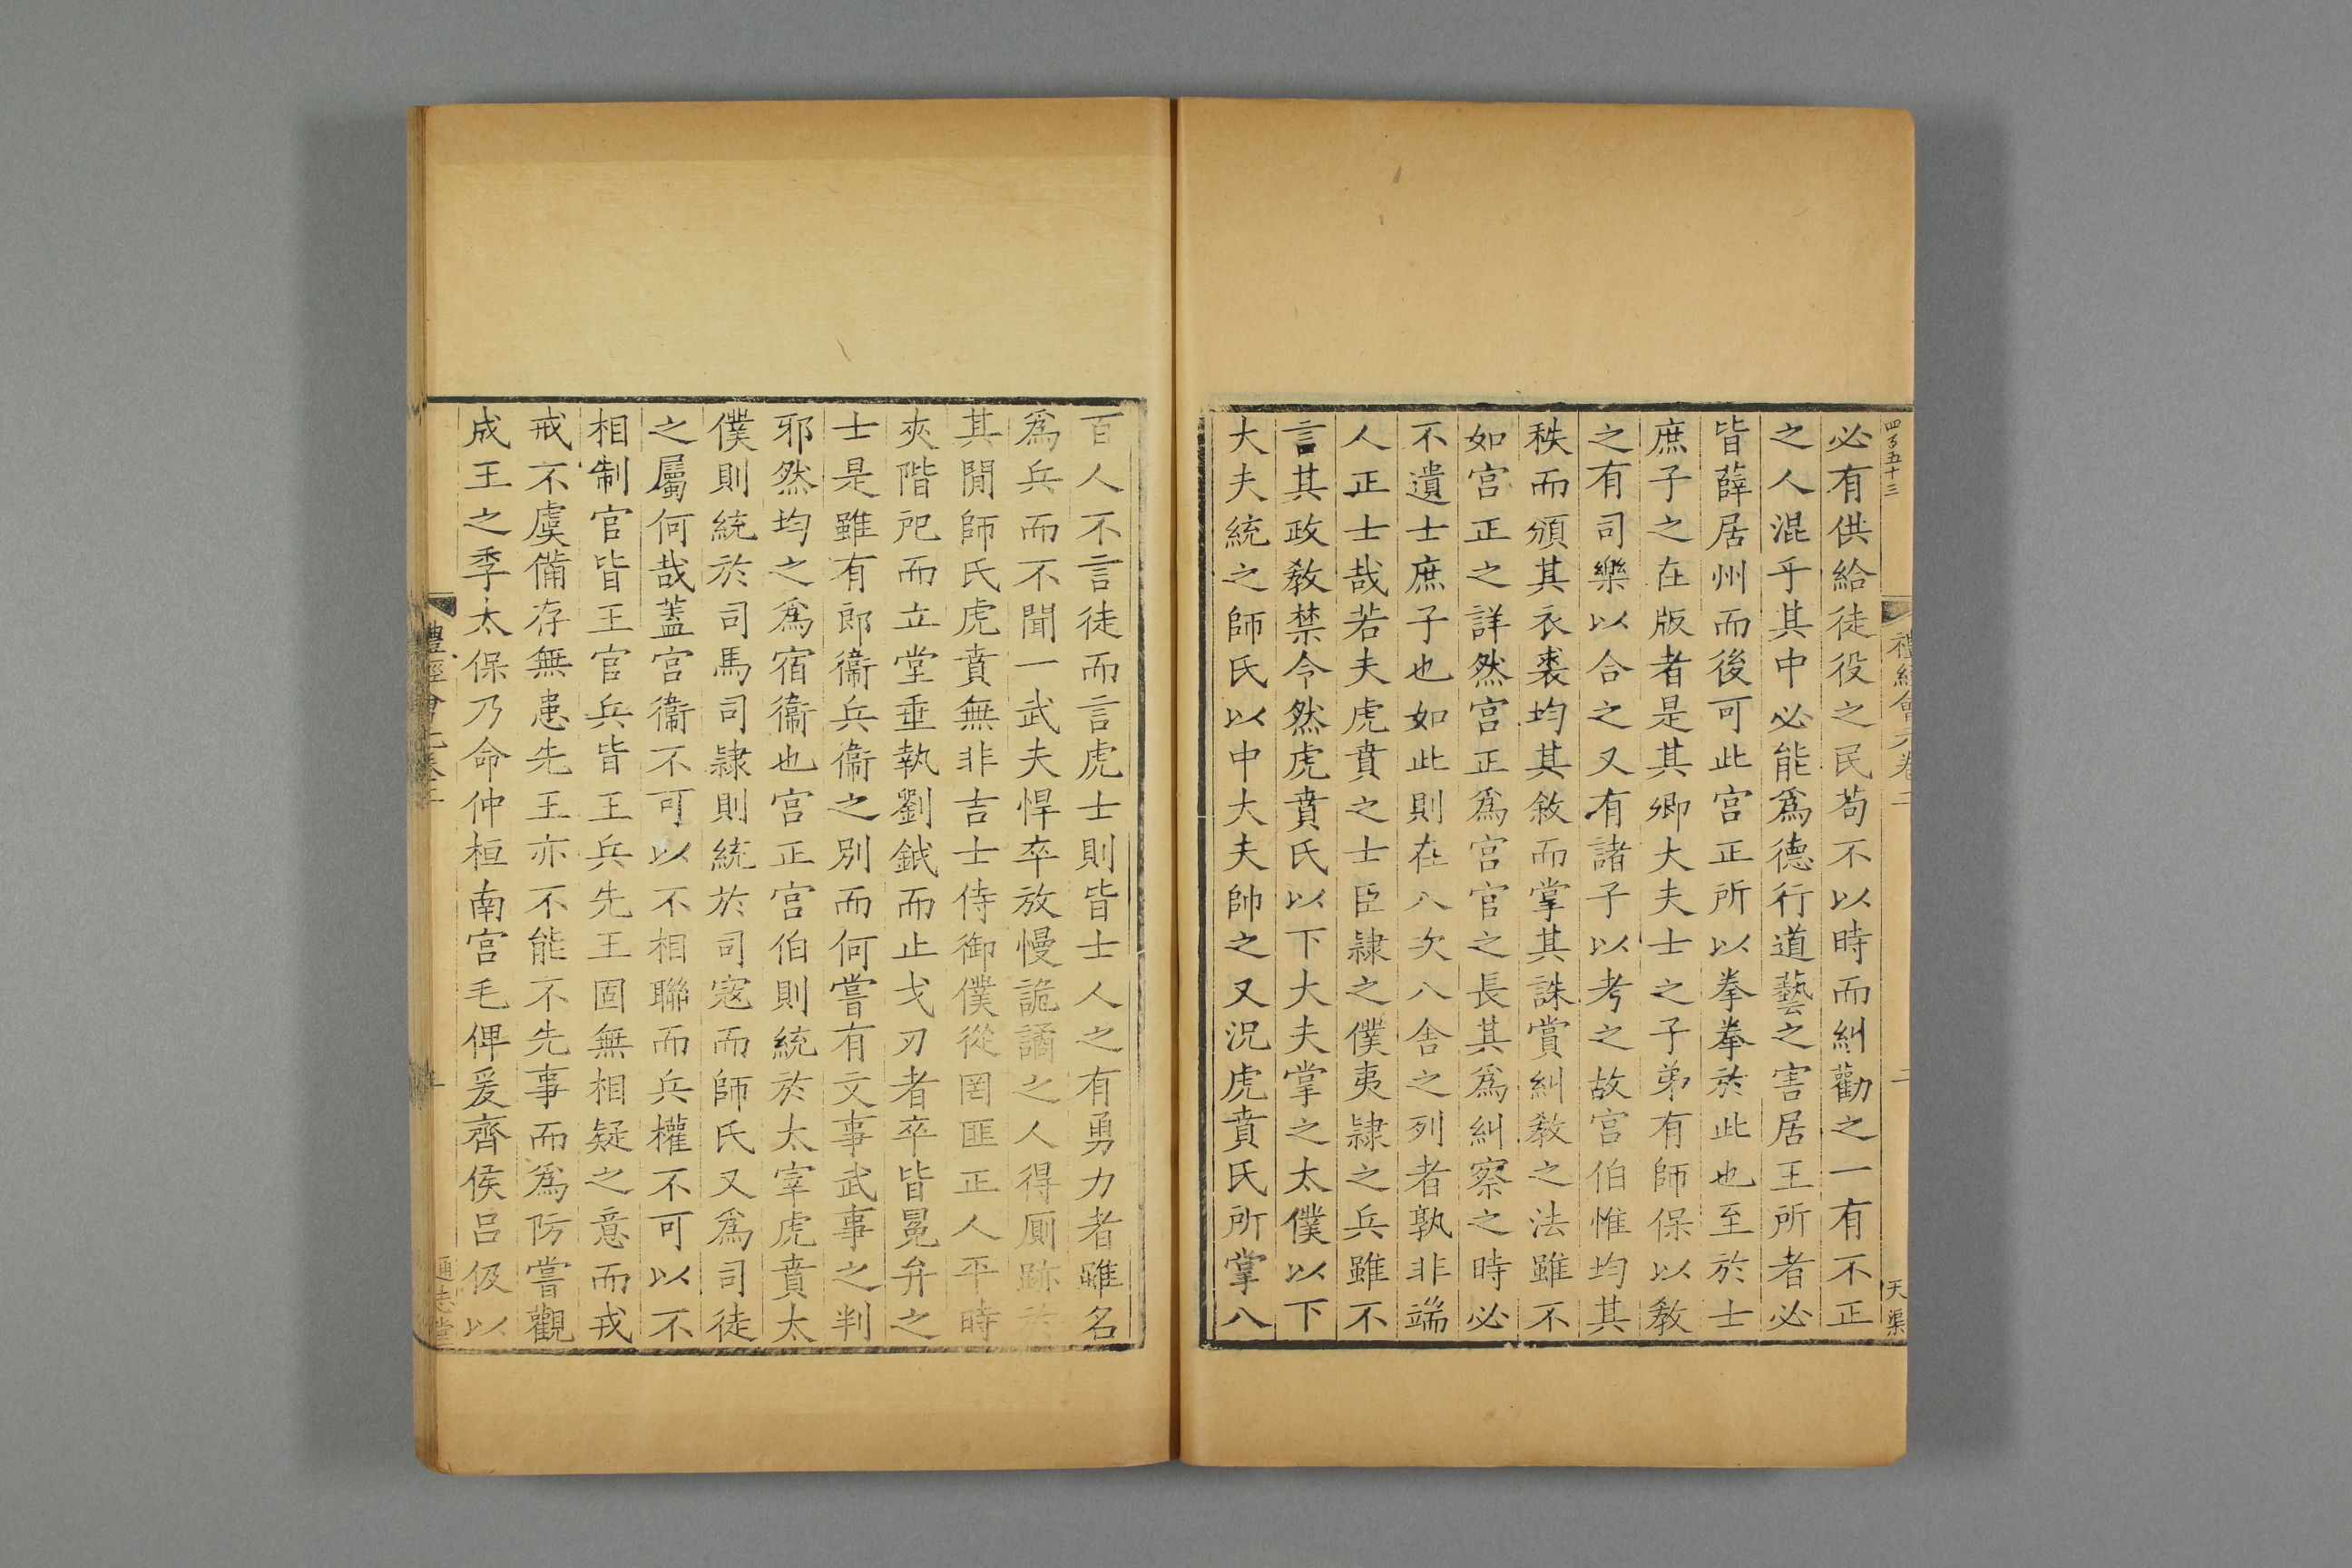 四百五十三
禮經會元卷二
二
天渠
必有供給徒役之民苟不以時而糾勸之一有不正
之人混乎其中必能爲德行道藝之害居王所者必
皆薛居州而後可此宫正所以拳拳於此也至於士
庶子之在版者是其卿大夫士之子弟有師保以敎
之有司樂以合之又有諸子以考之故宫伯惟均其
秩而頒其衣裘均其敘而掌其誅賞糾敎之法雖不
如宫正之詳然宫正爲宫官之長其爲糾察之時必
不遺士庶子也如此則在八次八舍之列者孰非端
人正士哉若夫虎賁之士臣隷之僕夷隷之兵雖不
言其政敎禁令然虎賁氏以下大夫掌之太僕以下
大夫統之師氏以中大夫帥之又況虎賁氏所掌八
百人不言徒而言虎士則皆士人之有勇力者雖名
爲兵而不聞一武夫悍卒放慢詭譎之人得厠跡於
其閒師氏虎賁無非吉士侍御僕從罔匪正人平時
夾階戺而立堂垂執劉鉞而止戈刃者卒皆冕弁之
士是雖有郎衞兵衞之別而何嘗有文事武事之判
邪然均之爲宿衞也宫正宫伯則統於太宰虎賁太
僕則統於司馬司隷則統於司寇而師氏又爲司徒
之屬何哉蓋宫衞不可以不相聯而兵權不可以不
相制官皆王官兵皆王兵先王固無相疑之意而戎
戒不虞備存無患先王亦不能不先事而爲防嘗觀
成王之季太保乃命仲桓南宫毛俾爰齊侯呂伋以
通志堂